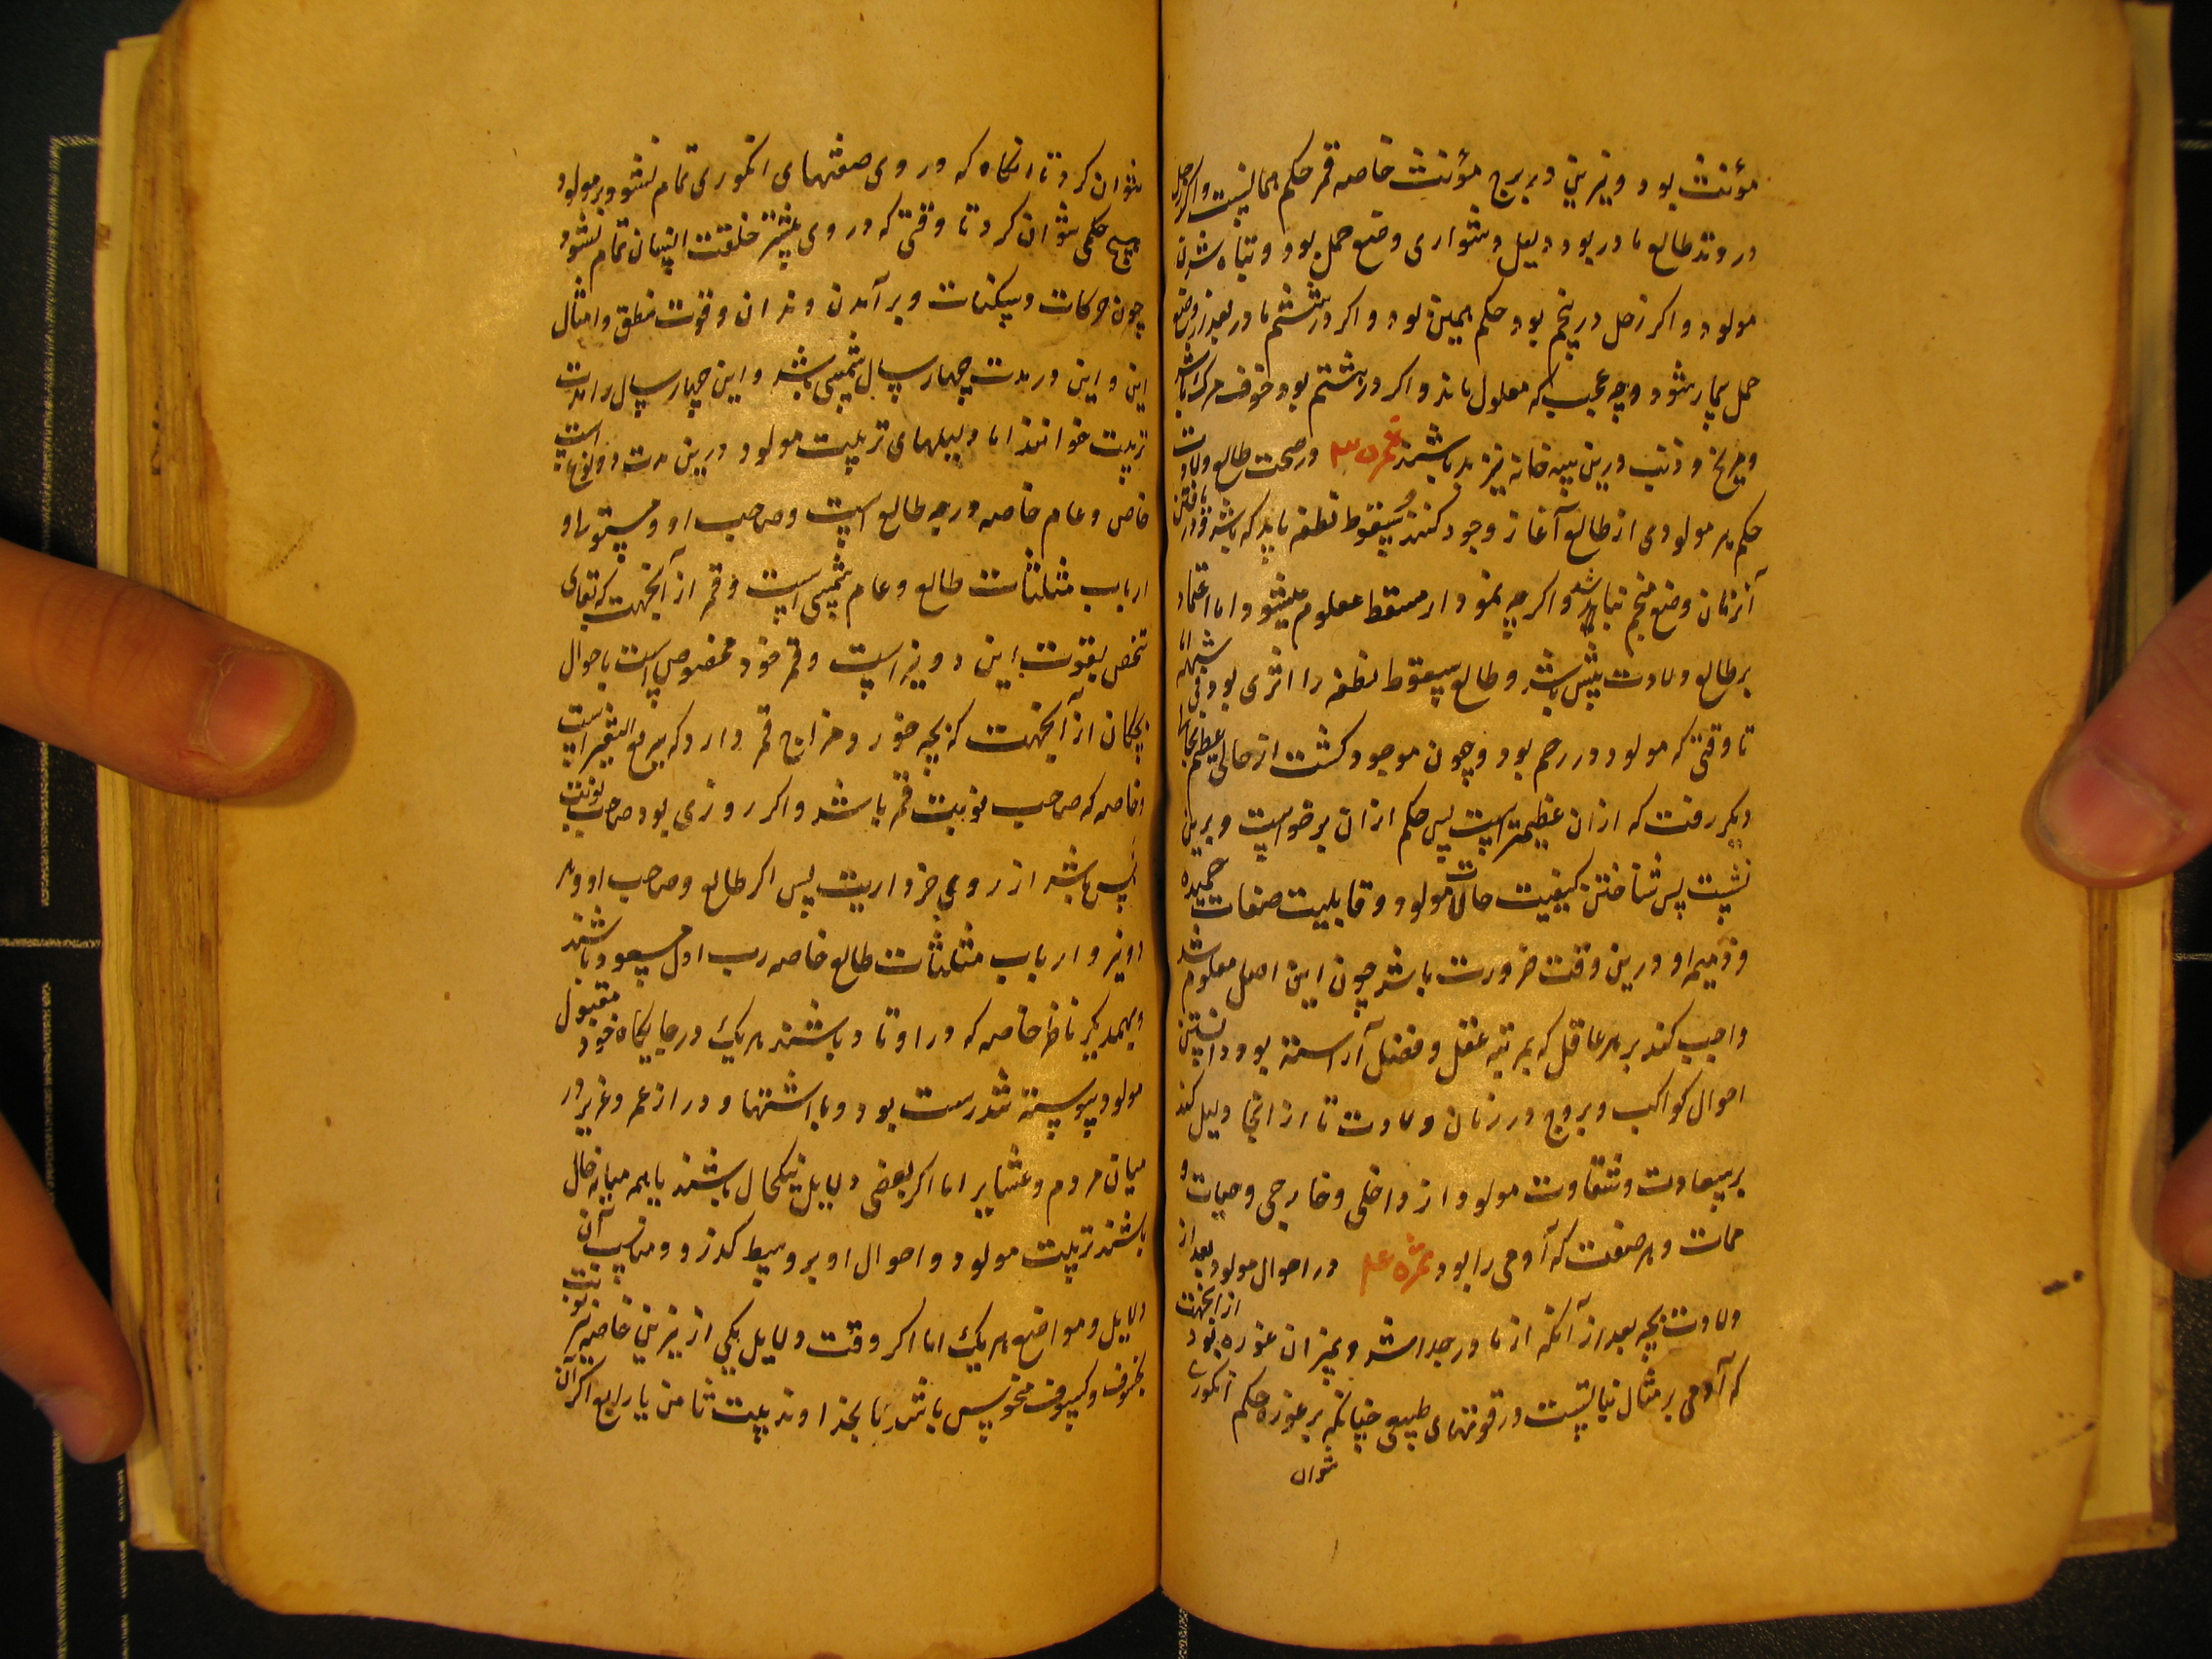 مؤنث بود و نیرین در برج مؤنث خاصه قمر حکم همانست و اکر زحل
در وتد طالع مادر بود دلیل دشواری وضع حمل بود و تباه شدن
مولود و اکر زحل در پنجم بود حکم همین بود و اکر در ششم مادر بعد از وضع
حمل بیمار شود وچه عجب که معلول ماند و اکر در هشتم بود خوف مرک باشد
و مریخ و ذنب درین سه خانه نیز بد باشند ثمره ۳ در صحت طالع ولادت
حکم هر مولودی از طالع آغاز وجود کنند سقوط نطفه باید که باشد
آنزمان وضع منجم نباشد و اکر چه بنمودار مسقط معلوم میشود اما اعتماد
بر طالع ولادت بیش باشد و طالع سقوط نطفه را اثری بود
تا وقتی که مولود در رحم بود و چون موجود کشت از حالی عظیم بحالی
دیکر رفت که از ان عظیمتر است پس حکم ازان برخواست و برین
نشست پس شناختن کیفیت حالات مولود و قابلیت صفات حمیده
و ذمیمه او درین وقت ضرورت باشد چون این اصل معلوم شد
واجب کند بر هر عاقل که بمرتبه عقل و فضل آراسته بود دانستن
احوال کواکب و بروج در زمان ولادت تا از انجا دلیل کند
بر سعادت و شقاوت مولود از داخلی و خارجی و حیات و
ممات و هر صفت که آدمی را بود ثمره ۴ در احوال مولود بعد از
ولادت بچه بعد از آنکه از مادر جدا شد و بمیزان غوره بود از انجهت
که آدمی بر مثال نباتیست در قوتهای طبیعی چنانکه بر غوره حکم انکوری
نتوان
نتوان کرد تا انکاه که در وی صفتهای انکوری تمام نشود بر مولود
هیچ حکمی نتوان کرد تا وقتی که در وی بیشتر خلقت انسان تمام نشود
چون حرکات و سکنات و برآمدن دندان و قوت نطق و امثال
این و این در مدت چهار سال شمسی باشد و این چهار سال را مدت
تربیت خوانند اما دلیلهای تربیت مولود درین مدت دو نوع است
خاص و عام خاصه درجه طالع است و صاحب او و مستولی او
ارباب مثلثات طالع و عام شمس است و قمر از آنجهت که
شخص بقوت این دو نیر است و قمر خود مخصوص است باحوال
بچکان از آنجهت که بچه خورد مزاج قمر دارد که سریع التغیر است
و خاصه که صاحب نوبت قمر باشد و اکر روزی بود صاحب نوبت
شمس باشد از روی خرداریت پس اکر طالع و صاحب او و هر
دو نیر و ارباب مثلثات طالع خاصه رب اول مسعود باشند
و بهمدیکر ناظر خاصه که در اوتاد باشند هر یک در جایکاه خود مقبول
مولود پیوسته تندرست بود و با اشتها و دراز عمر و عزیز در
میان مردم و عشایر اما اکر بعضی دلایل نیکحال باشند یا همه میانه حال
باشند تربیت مولود و احوال او بر وسط کذرد و مناسب آن
دلایل و مواضع هر یک اما اکر وقت دلایل یکی از نیرین خاصه نیر نوبت
بخسوف و کسوف منحوس باشد یا بخداوند بیت ثامن یا رابع اکر آن